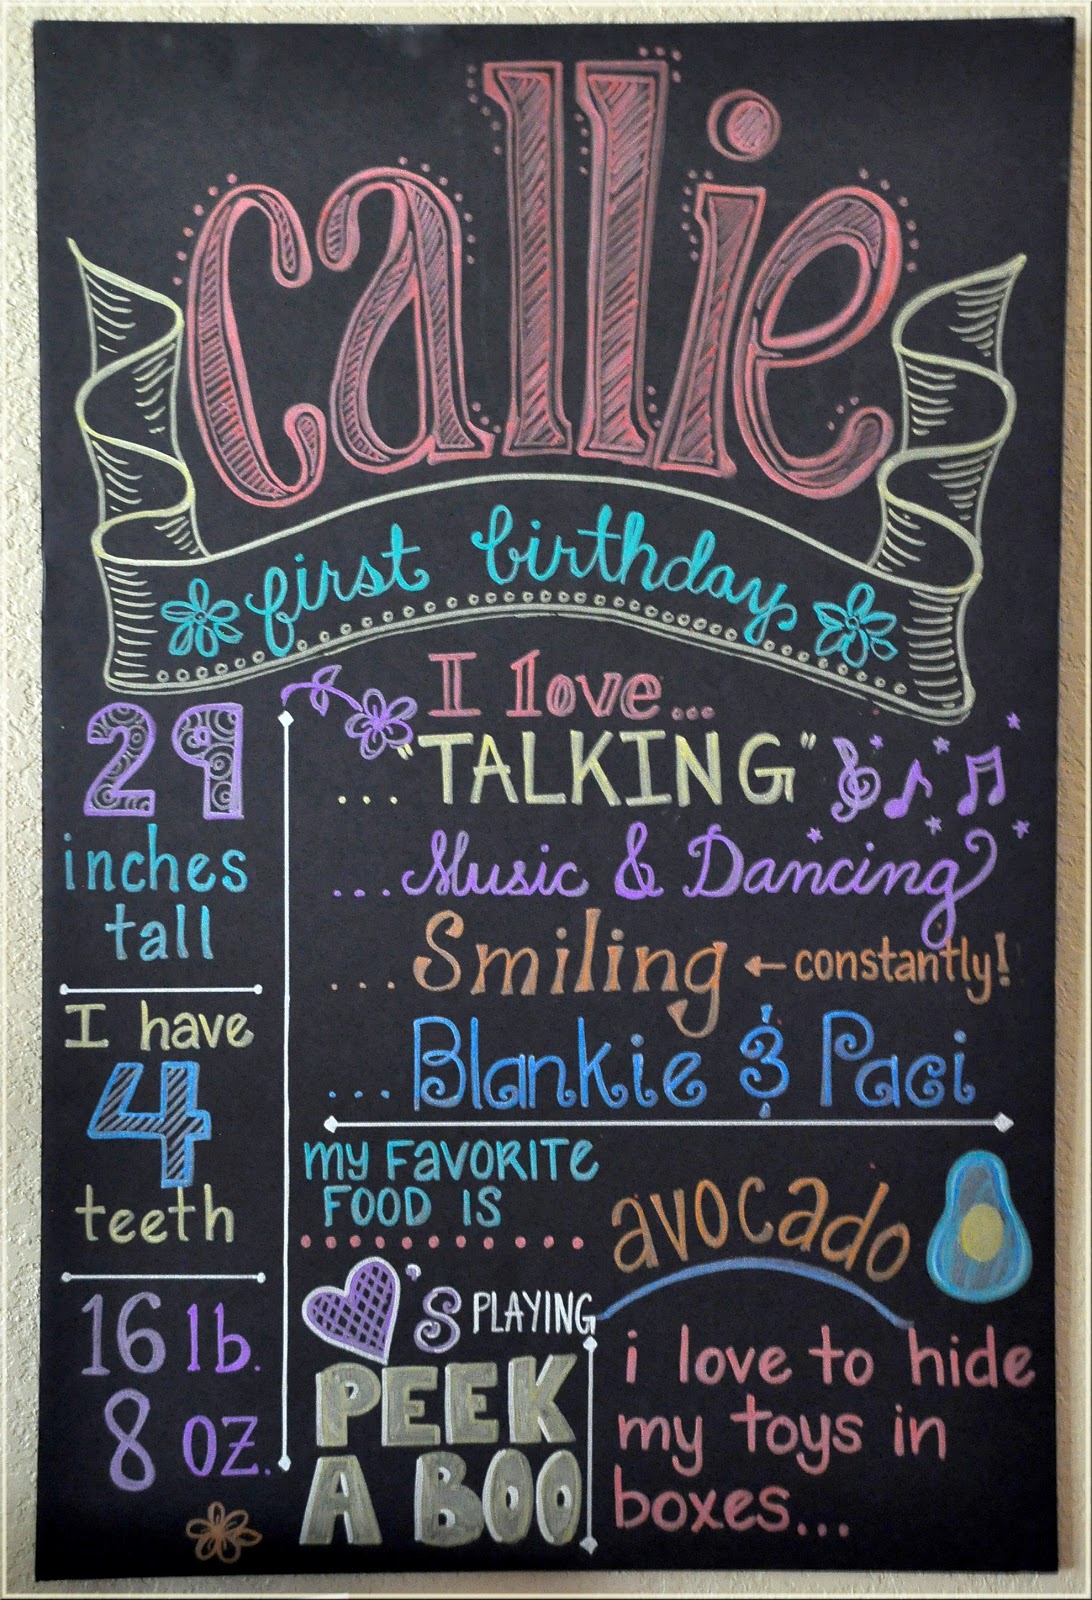 callie
first birthday
29
inches
tall
I have
4
teeth
16 lb.
8 oz.
I love...
... "TALKING"
... Music & Dancing
... Smiling ← constantly!
... Blankie & Paci
my FAVORITE
FOOD IS
avocado
♥'s PLAYING
PEEK
A BOO
i love to hide
my toys in
boxes...